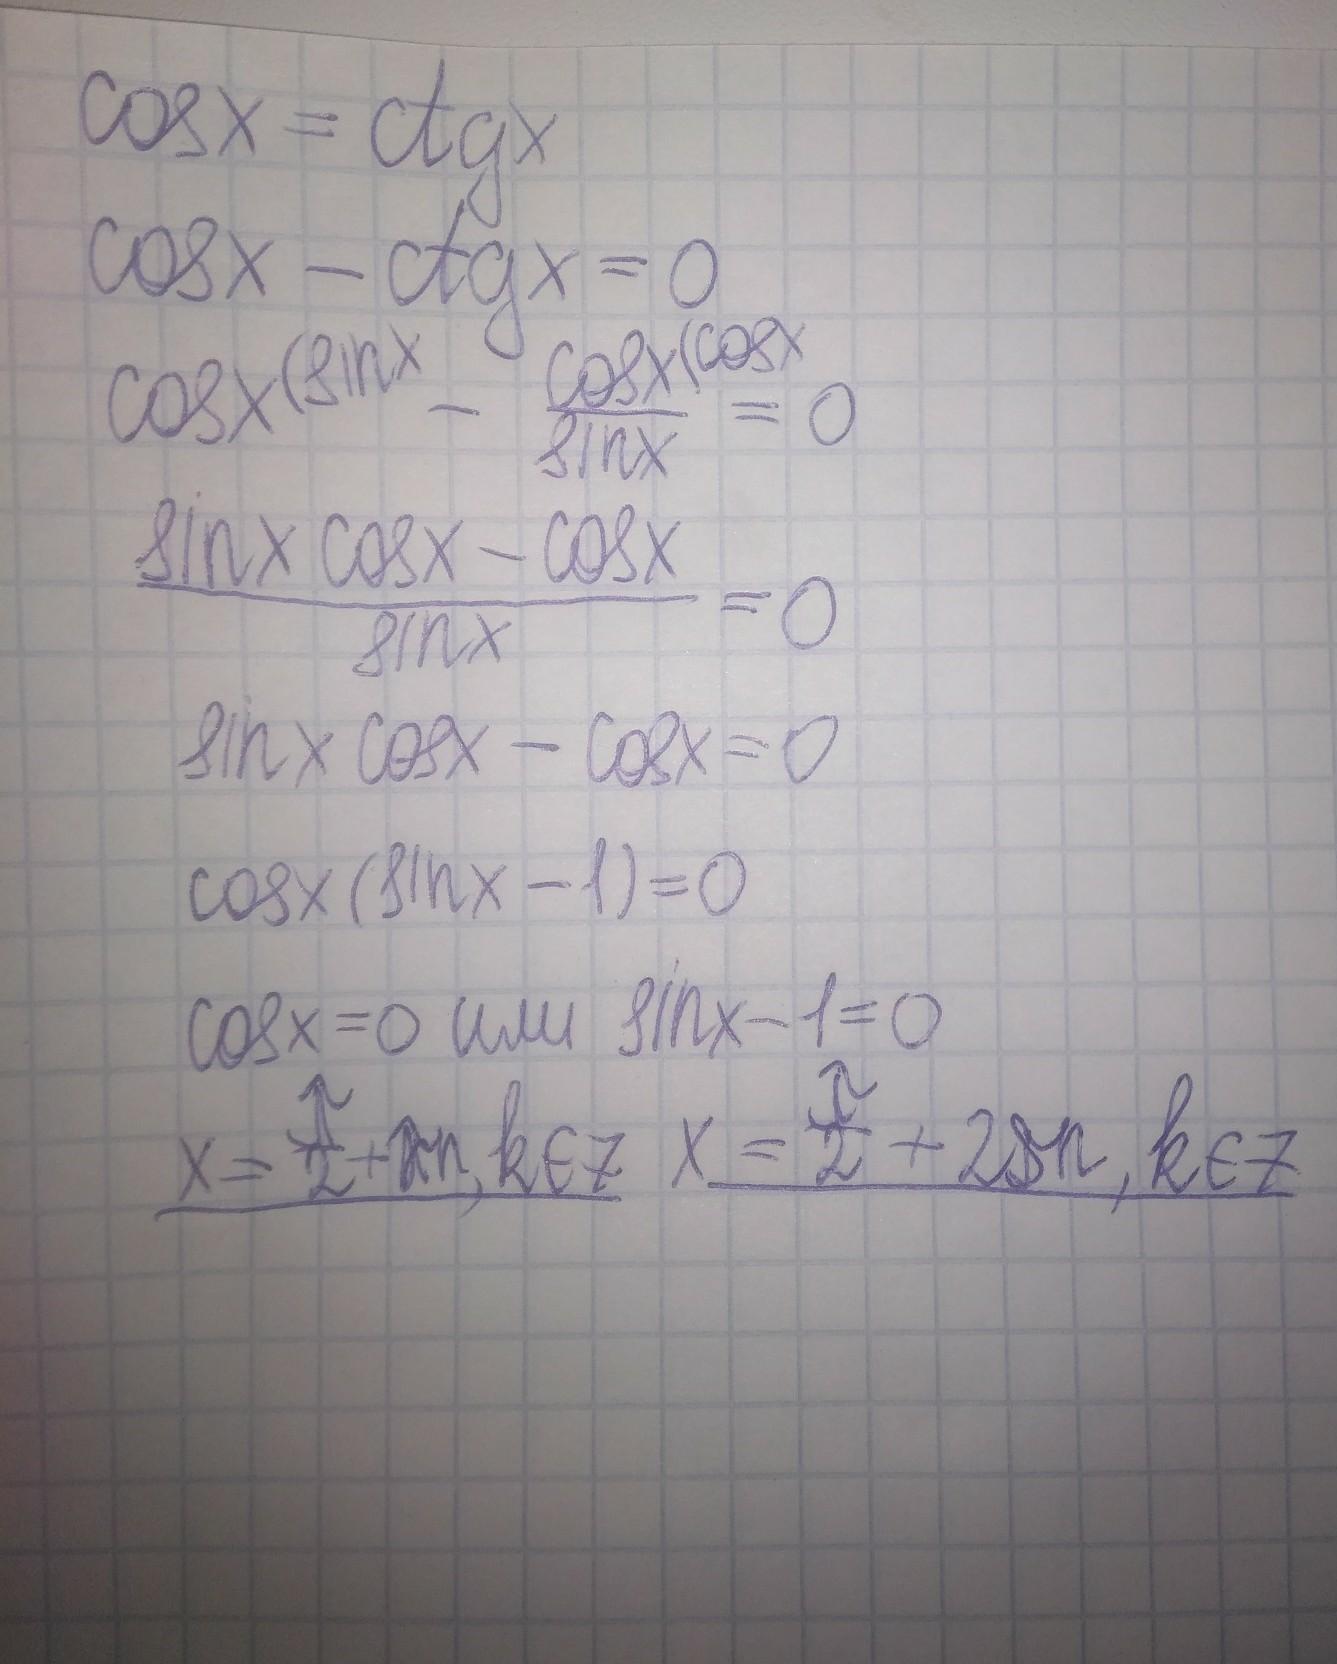 cosx = ctgx
cosx - ctgx = 0
cosx(sinx - cosx(cosx/sinx = 0
sinx cosx - cosx/sinx = 0
sinx cosx - cosx = 0
cosx(sinx - 1) = 0
cosx = 0 или sinx - 1 = 0
x = π/2 + πn, k∈z x = π/2 + 2πn, k∈z